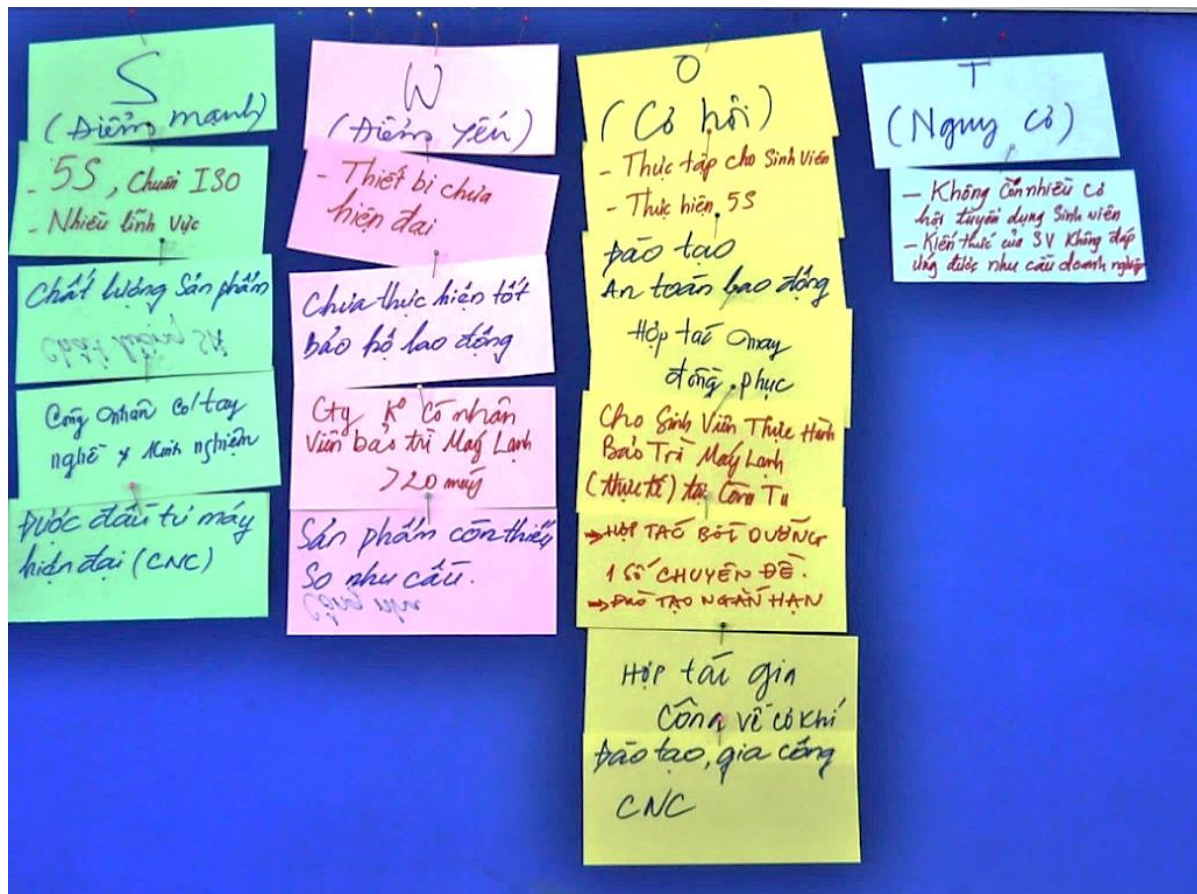 S
(Điểm mạnh)
- 5S, Chuẩn ISO
- Nhiều lĩnh vực
Chất lượng Sản phẩm
Công nhân có tay
nghề & kinh nghiệm
Được đầu tư máy
hiện đại (CNC)
W
(Điểm yếu)
- Thiết bị chưa
hiện đại
Chưa thực hiện tốt
bảo hộ lao động
Cty K° có nhân
viên bảo trì Máy Lạnh
>20 máy
Sản phẩm còn thiếu
so nhu cầu.
O
(Cơ hội)
- Thực tập cho Sinh Viên
- Thực hiện 5S
Đào tạo
An toàn lao động
Hợp tác may
đồng phục
Cho Sinh Viên Thực Hành
Bảo Trì Máy Lạnh
(thực tế) tại Công Ty
→ HỢP TÁC BỒI DƯỠNG
1 SỐ CHUYÊN ĐỀ.
→ ĐÀO TẠO NGẮN HẠN
Hợp tác gia
công về cơ khí
Đào tạo, gia công
CNC
T
(Nguy cơ)
- Không còn nhiều cơ
hội tuyển dụng Sinh viên
- Kiến thức của SV không đáp
ứng được nhu cầu doanh nghiệp